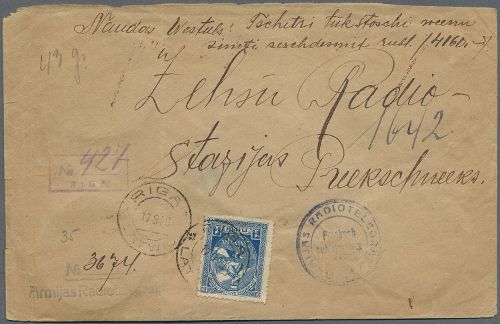 Naudas Westule: Tschetri tukstoschi weenu
simti seschdesmit rubl. /4160.-/
43 g.
Zehsu Radio-
Stazijas Preekschneeks.
1642
№ 427
RIGA
RIGA
LATWIJA
35
№ 3674.
Armijas Radiotel
ARMIJAS RADIOTELEGR